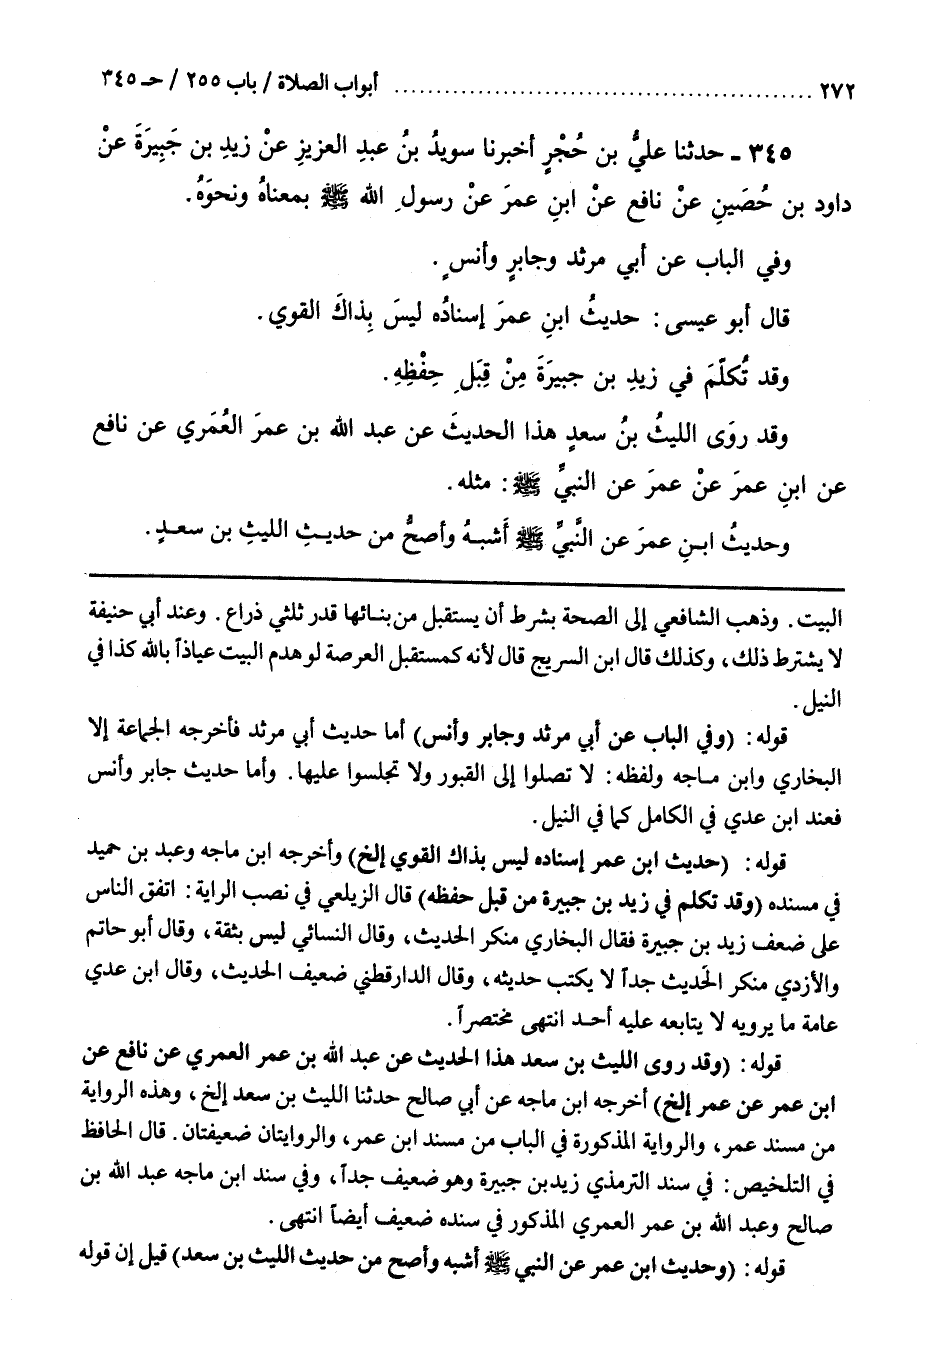 ٢٧٢ ................................................ أبواب الصلاة / باب ٢٥٥ / حـ ٣٤٥
٣٤٥ ـ حدثنا عليُّ بن حُجْرٍ أخبرنا سويدُ بنُ عبدِ العزيزِ عنْ زيدِ بن جَبِيرَةَ عنْ
داود بن حُصَينِ عنْ نافع عنْ ابنِ عمرَ عنْ رسولِ الله ﷺ بمعناهُ ونحوَهُ.
وفي الباب عن أبي مرثد وجابرٍ وأنسٍ.
قال أبو عيسى: حديثُ ابنِ عمرَ إسنادُه ليسَ بِذاكَ القوي.
وقد تُكلّمَ في زيدِ بن جبيرَةَ مِنْ قِبَلِ حِفْظِهِ.
وقد روَى الليثُ بنُ سعدٍ هذا الحديثَ عن عبد الله بن عمرَ العُمَري عن نافع
عن ابنِ عمرَ عنْ عمرَ عن النبيِّ ﷺ: مثله.
وحديثُ ابنِ عمرَ عن النَّبيِّ ﷺ أَشبهُ وأصحُّ من حديثِ الليثِ بن سعدٍ.
البيت. وذهب الشافعي إلى الصحة بشرط أن يستقبل من بنائها قدر ثلثي ذراع. وعند أبي حنيفة
لا يشترط ذلك، وكذلك قال ابن السريج قال لأنه كمستقبل العرصة لو هدم البيت عياذاً بالله كذا في
النيل.
قوله: (وفي الباب عن أبي مرثد وجابر وأنس) أما حديث أبي مرثد فأخرجه الجماعة إلا
البخاري وابن ماجه ولفظه: لا تصلوا إلى القبور ولا تجلسوا عليها. وأما حديث جابر وأنس
فعند ابن عدي في الكامل كما في النيل.
قوله: (حديث ابن عمر إسناده ليس بذاك القوي إلخ) وأخرجه ابن ماجه وعبد بن حميد
في مسنده (وقد تكلم في زيد بن جبيرة من قبل حفظه) قال الزيلعي في نصب الراية: اتفق الناس
على ضعف زيد بن جبيرة فقال البخاري منكر الحديث، وقال النسائي ليس بثقة، وقال أبو حاتم
والأزدي منكر الحَديث جداً لا يكتب حديثه، وقال الدارقطني ضعيف الحديث، وقال ابن عدي
عامة ما يرويه لا يتابعه عليه أحد انتهى مختصراً.
قوله: (وقد روى الليث بن سعد هذا الحديث عن عبد الله بن عمر العمري عن نافع عن
ابن عمر عن عمر إلخ) أخرجه ابن ماجه عن أبي صالح حدثنا الليث بن سعد إلخ، وهذه الرواية
من مسند عمر، والرواية المذكورة في الباب من مسند ابن عمر، والروايتان ضعيفتان. قال الحافظ
في التلخيص: في سند الترمذي زيد بن جبيرة وهو ضعيف جداً، وفي سند ابن ماجه عبد الله بن
صالح وعبد الله بن عمر العمري المذكور في سنده ضعيف أيضاً انتهى.
قوله: (وحديث ابن عمر عن النبي ﷺ أشبه وأصح من حديث الليث بن سعد) قيل إن قوله